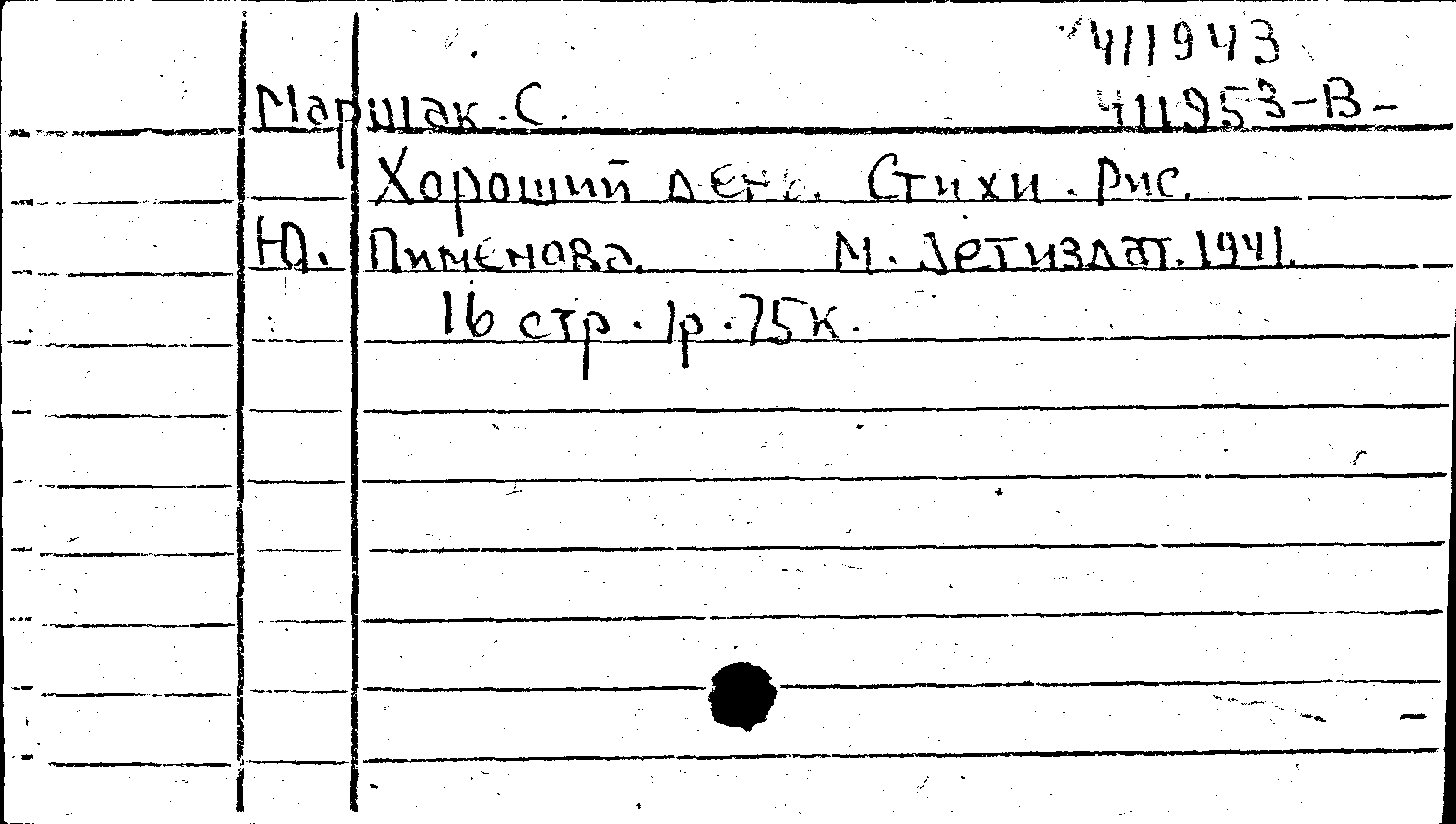 411943
Маршак. С. 411953-В-
Хороший день. Стихи. Рис.
Ю. Пименова. М. Детиздат. 1941.
16 стр. 1р. 75к.